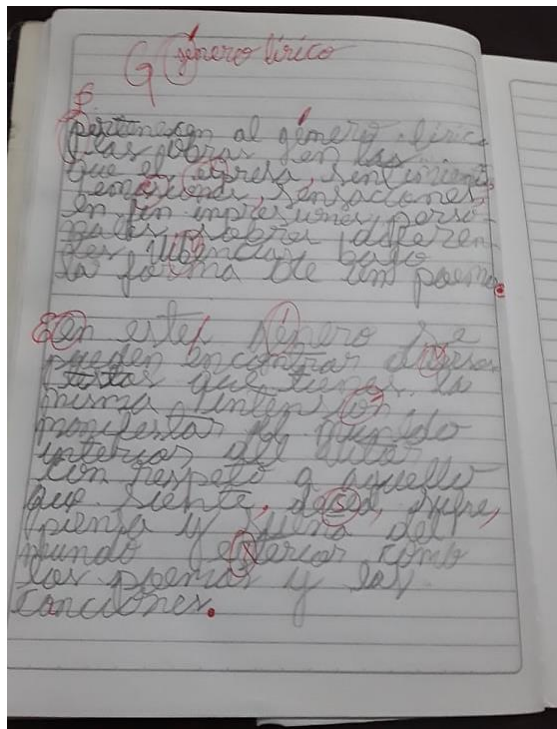 género lírico
pertenecen al género líric
las obras en las
que el expresa, sentimient
emociones, sensaciones,
en fin impresiones, perso-
nales sobres diferen
tes bajo
la forma de un poema.
en este género se
pueden encontrar
que tienen la
misma
manifestar el mundo
interior del autor
con respeto a aquello
que siente, desea, sufre,
piensa y sueña del
mundo exterior como
los poemas y las
canciones.